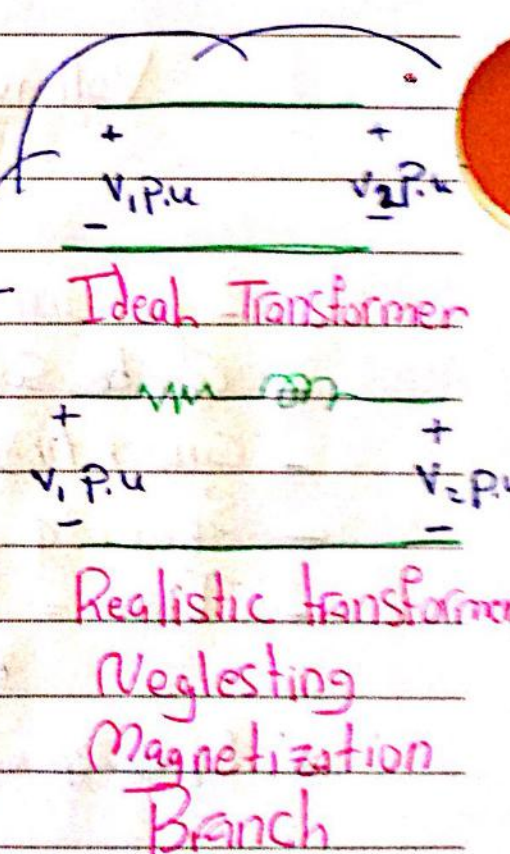 + +
V₁ P.u V₂ P.u
- -
Ideal Transformer
+ +
V₁ P.u V₂ P.u
- -
Realistic transformer
Neglesting
Magnetization
Branch